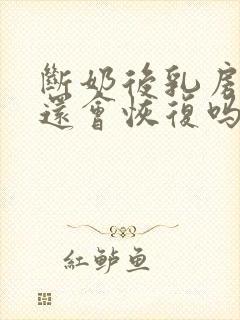 斷奶後乳房
還會恢復嗎
紅鱸魚